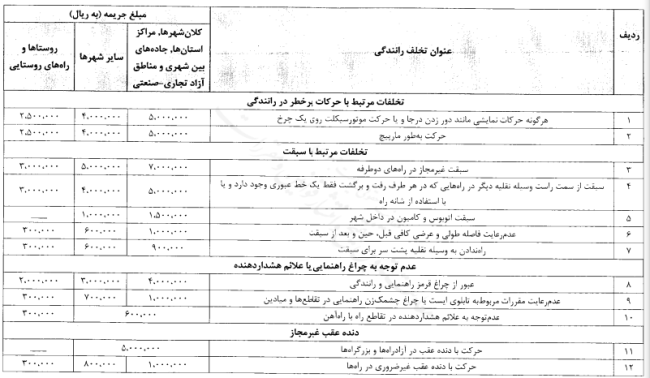 ردیف
عنوان تخلف رانندگی
مبلغ جریمه (به ریال)
کلان‌شهرها، مراکز استان‌ها، جاده‌های بین شهری و مناطق آزاد تجاری-صنعتی
سایر شهرها
روستاها و راه‌های روستایی
تخلفات مرتبط با حرکات پرخطر در رانندگی
۱ هرگونه حرکات نمایشی مانند دور زدن درجا و یا حرکت موتورسیکلت روی یک چرخ ۵,۰۰۰,۰۰۰ ۴,۰۰۰,۰۰۰ ۲,۵۰۰,۰۰۰
۲ حرکت به‌طور مارپیچ ۵,۰۰۰,۰۰۰ ۴,۰۰۰,۰۰۰ ۲,۵۰۰,۰۰۰
تخلفات مرتبط با سبقت
۳ سبقت غیرمجاز در راه‌های دوطرفه ۷,۰۰۰,۰۰۰ ۵,۰۰۰,۰۰۰ ۳,۰۰۰,۰۰۰
۴ سبقت از سمت راست وسیله نقلیه دیگر در راه‌هایی که در هر طرف رفت و برگشت فقط یک خط عبوری وجود دارد و یا با استفاده از شانه راه ۵,۰۰۰,۰۰۰ ۴,۰۰۰,۰۰۰ ۳,۰۰۰,۰۰۰
۵ سبقت اتوبوس و کامیون در داخل شهر ۱,۵۰۰,۰۰۰ ۱,۰۰۰,۰۰۰ ——
۶ عدم‌رعایت فاصله طولی و عرضی کافی قبل، حین و بعد از سبقت ۱,۰۰۰,۰۰۰ ۶۰۰,۰۰۰ ۳۰۰,۰۰۰
۷ راه‌ندادن به وسیله نقلیه پشت سر برای سبقت ۹۰۰,۰۰۰ ۶۰۰,۰۰۰ ۳۰۰,۰۰۰
عدم توجه به چراغ راهنمایی یا علائم هشداردهنده
۸ عبور از چراغ قرمز راهنمایی و رانندگی ۴,۰۰۰,۰۰۰ ۳,۰۰۰,۰۰۰ ۲,۰۰۰,۰۰۰
۹ عدم‌رعایت مقررات مربوط‌به تابلوی ایست یا چراغ چشمک‌زن راهنمایی در تقاطع‌ها و میادین ۱,۰۰۰,۰۰۰ ۷۰۰,۰۰۰ ۳۰۰,۰۰۰
۱۰ عدم‌توجه به علائم هشداردهنده در تقاطع راه با راه‌آهن ۶۰۰,۰۰۰ ۳۰۰,۰۰۰
دنده عقب غیرمجاز
۱۱ حرکت با دنده عقب در آزادراه‌ها و بزرگراه‌ها ۵,۰۰۰,۰۰۰ ——
۱۲ حرکت با دنده عقب غیرضروری در راه‌ها ۱,۰۰۰,۰۰۰ ۸۰۰,۰۰۰ ۳۰۰,۰۰۰